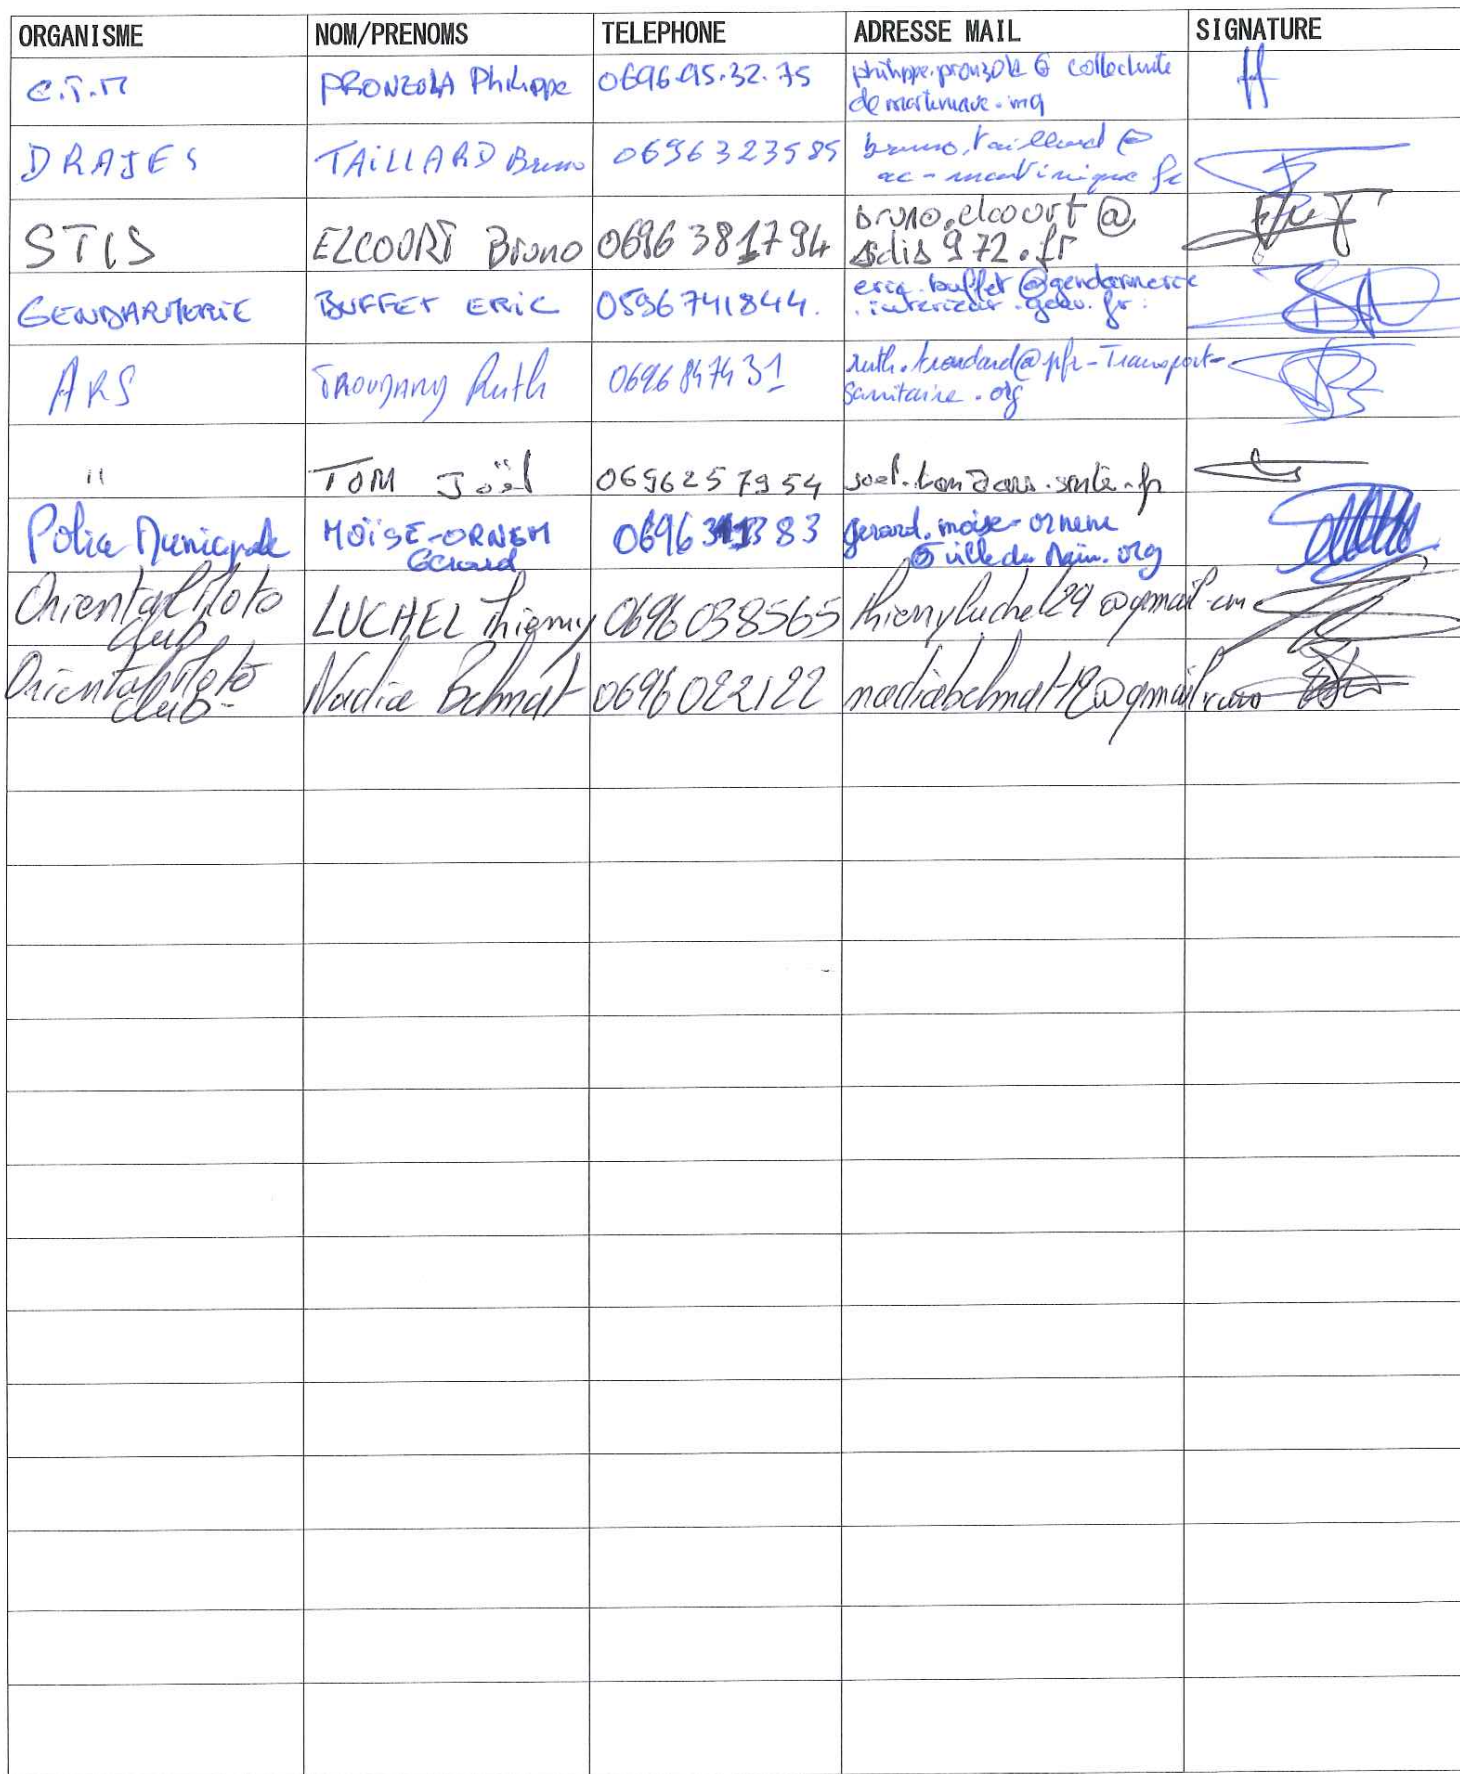 ORGANISME NOM/PRENOMS TELEPHONE ADRESSE MAIL SIGNATURE
C.T.M PRONZOLA Philippe 0696.95.32.75 philippe.pronzola @ collectivite
de martinique.mq
DRAJES TAILLARD Bruno 0696323585 bruno.taillard @
ac-martinique.fr
STIS ELCOORT Bruno 0696381794 bruno.elcoort @
sdis972.fr
GENDARMERIE BUFFET ERIC 0596741844. eric.buffet @gendarmerie
.interieur.gouv.fr
ARS Ruth 0696847431 @pfr-Transport-
sanitaire.org
" TOM Joël 0696257954 joel.tom@ars.sante.fr
Police Municipale MOÏSE-ORNEM
Gérard 0696 83 gerard.moise-ornem
@villedu .org
Oriental Moto
club LUCHEL Thierry 0696038565 thierryluchel29@gmail.com
Oriental Moto
club- Nadia Belmat 0696022122 nadiabelmat12@gmail.com